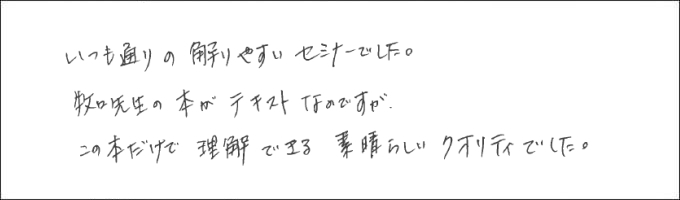 いつも通りの解りやすいセミナーでした。
牧口先生の本がテキストなのですが、
この本だけで理解できる素晴らしいクオリティでした。